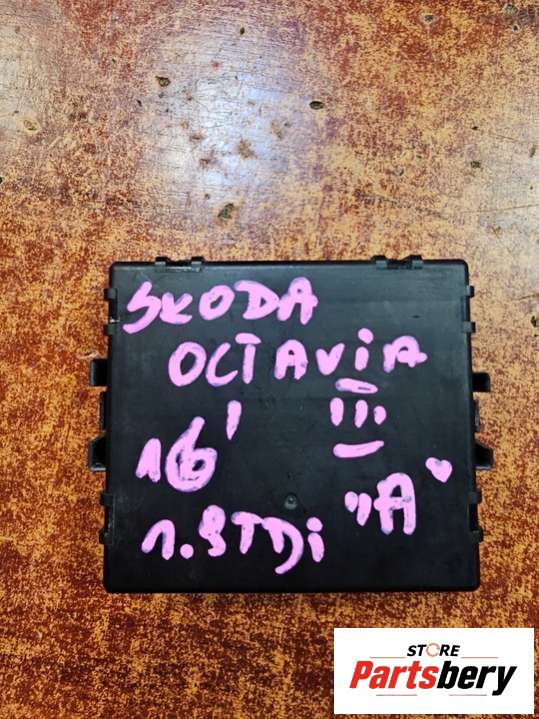 SKODA
OCTAVIA
16' III
1.9TDi „A"
STORE
Partsbery